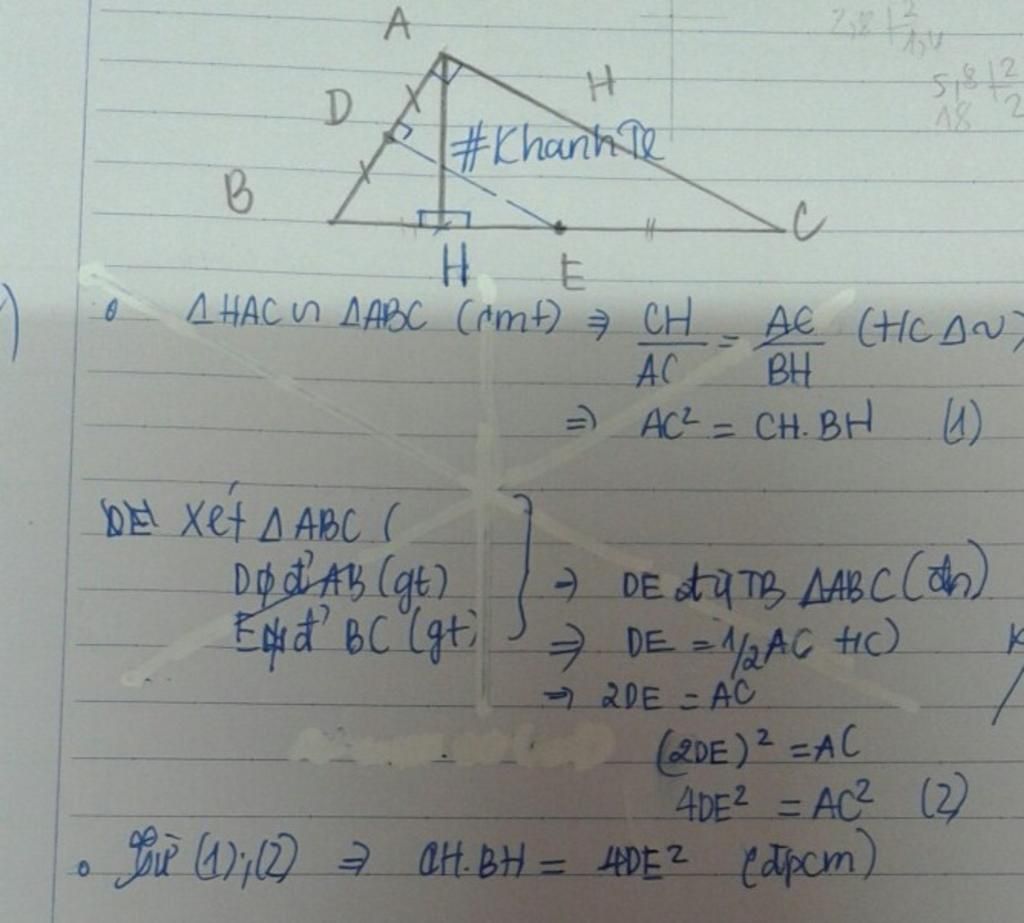 A
D
H
#KhanhTe
B
C
H
E
ΔHAC ∽ ΔABC (cmt) ⇒ CH/AC = AC/BH (HC Δ~)
⇒ AC² = CH.BH (1)
DE Xét ΔABC (
D tđ AB (gt)
E tđ BC (gt)
⇒ DE đg TB ΔABC (đn)
⇒ DE = 1/2 AC HC)
⇒ 2DE = AC
(2DE)² = AC
4DE² = AC² (2)
Từ (1);(2) ⇒ CH.BH = 4DE² (đpcm)